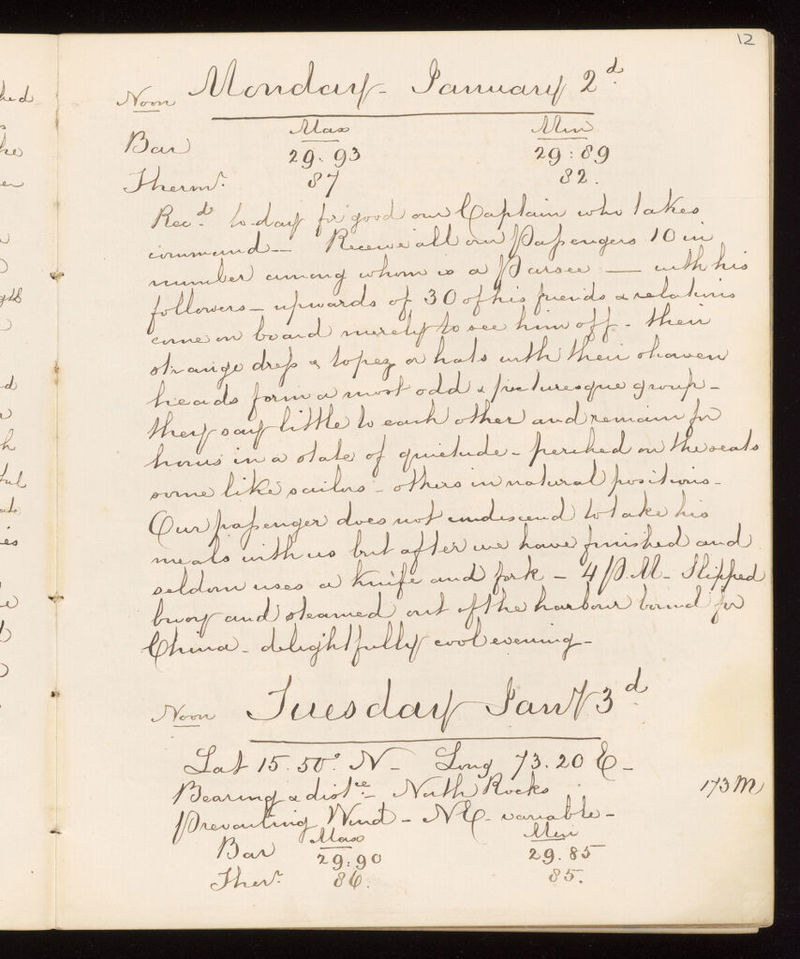 12
Noon Monday - January 2d
Max Min
Bar 29.93 29:89
Therm.r 87 82.
Rec.d to-day for good our Captain who takes
command — Receive all our Passengers 10 in
number among whom is a Parsee — with his
followers - upwards of 30 of his friends & relations
come on board merely to see him off - their
strange dress & topez or hats with their shaven
heads form a most odd & picturesque group -
they say little to each other and remain for
hours in a state of quietude - perched on the seats
some like sailors - others in natural positions -
Our passenger does not condescend to take his
meals with us but after we have finished and
seldom uses a knife and fork - 4 P.M - Slipped
buoy and steamed out of the harbour bound for
China - delightfully cool evening -
Noon Tuesday Jany 3d
Lat 15.50° N - Long 73.20 E -
Bearing & distce - North Rocks 173 M
Prevailing Wind - NE - variable -
Max Min
Bar 29:90 29.85
Ther.r 86. 85.
ked
he
gth
d
h
ful
ies